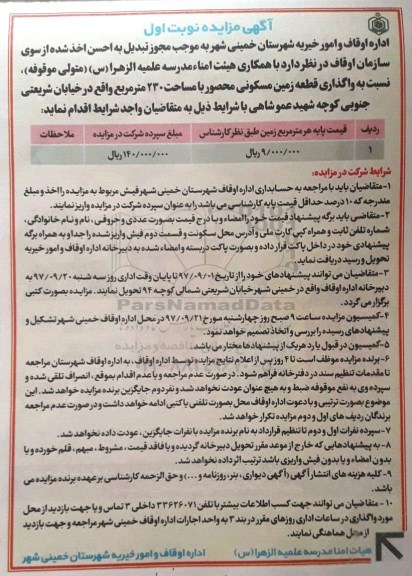 آگهی مزایده نوبت اول
اداره اوقاف و امور خیریه شهرستان خمینی شهر به موجب مجوز تبدیل به احسن اخذ شده از سوی
سازمان اوقاف در نظر دارد با همکاری هیئت امناء مدرسه علمیه الزهرا (س) (متولی موقوفه)،
نسبت به واگذاری قطعه زمین مسکونی محصور با مساحت ۲۳۰ مترمربع واقع در خیابان شریعتی
جنوبی کوچه شهید عمو شاهی با شرایط ذیل به متقاضیان واجد شرایط اقدام نماید:
ردیف قیمت پایه هر مترمربع زمین طبق نظر کارشناس مبلغ سپرده شرکت در مزایده ملاحظات
۱ ۹/۰۰۰/۰۰۰ ریال ۱۴۰/۰۰۰/۰۰۰ ریال
شرایط شرکت در مزایده:
۱- متقاضیان باید با مراجعه به حسابداری اداره اوقاف شهرستان خمینی شهر فیش مربوط به مزایده را اخذ و مبلغ
مندرجه که ۱۰ درصد حداقل قیمت پایه کارشناسی می باشد را به عنوان سپرده شرکت در مزایده واریز نمایند.
۲- متقاضی باید برگه پیشنهاد قیمت خود را امضاء و با درج قیمت بصورت عددی و حروفی، نام و نام خانوادگی،
شماره تلفن ثابت و همراه کپی کارت ملی و آدرس محل سکونت و قسمت دوم فیش واریز شده را جدا و به همراه برگه
پیشنهادی خود در داخل پاکت قرار داده و بصورت پاکت دربسته و امضاء شده به دبیرخانه اداره اوقاف و امور خیریه
تحویل و رسید دریافت نماید.
۳- متقاضیان می توانند پیشنهادهای خود را از تاریخ ۹۷/۰۹/۰۱ تا پایان وقت اداری روز سه شنبه ۹۷/۰۹/۲۰ به
دبیرخانه اداره اوقاف واقع در خمینی شهر خیابان شریعتی شمالی کوچه ۹۴ تحویل نمایند. مزایده بصورت کتبی
برگزار می گردد.
۴- کمیسیون مزایده ساعت ۹ صبح روز چهارشنبه مورخ ۹۷/۰۹/۲۱ در محل اداره اوقاف خمینی شهر تشکیل و
پیشنهادهای رسیده را بررسی و اتخاذ تصمیم خواهد نمود.
۵- کمیسیون در قبول یا رد هر یک از پیشنهادها مختار می باشد.
۶- برنده مزایده موظف است تا ۴ روز پس از اعلام نتایج مزایده توسط اداره اوقاف، به اداره اوقاف شهرستان مراجعه
تا مقدمات تنظیم سند در دفترخانه فراهم شود. در صورت عدم مراجعه و یا عدم اقدام بموقع، انصراف تلقی شده و
سپرده وی به نفع موقوفه ضبط و به هیچ عنوان عودت نخواهد شد و نفر دوم جایگزین برنده مزایده خواهد شد. این
موضوع بصورت ترتیبی و با دعوت اداره اوقاف محل بصورت تلفنی یا کتبی ادامه خواهد داشت و در صورت عدم مراجعه
برندگان ردیف های اول و دوم مزایده تکرار خواهد شد.
۷- سپرده نفرات اول و دوم تا تنظیم قرارداد به نام برنده مزایده یا نفرات جایگزین، عودت داده نخواهد شد.
۸- به پیشنهادهایی که خارج از موعد مقرر تحویل دبیرخانه گردیده و یا فاقد قیمت، مشروط، مبهم، قلم خورده و یا
بدون امضاء و یا بدون فیش واریزی باشد ترتیب اثر داده نخواهد شد.
۹- کلیه هزینه های انتشار آگهی (آگهی دیواری، بنر، روزنامه و...) و حق الزحمه کارشناسی بر عهده برنده مزایده می
باشد.
۱۰- متقاضیان می توانند جهت کسب اطلاعات بیشتر با تلفن ۳۳۶۲۶۰۷۱ داخلی ۳ تماس و یا جهت بازدید از محل
مورد واگذاری در ساعات اداری روزهای مقرر در بند ۳ به واحد اجارات اداره اوقاف خمینی شهر مراجعه و جهت بازدید
از محل هماهنگی نمایند.
هیات امنا مدرسه علمیه الزهرا (س) اداره اوقاف و امور خیریه شهرستان خمینی شهر
ParsNamadData